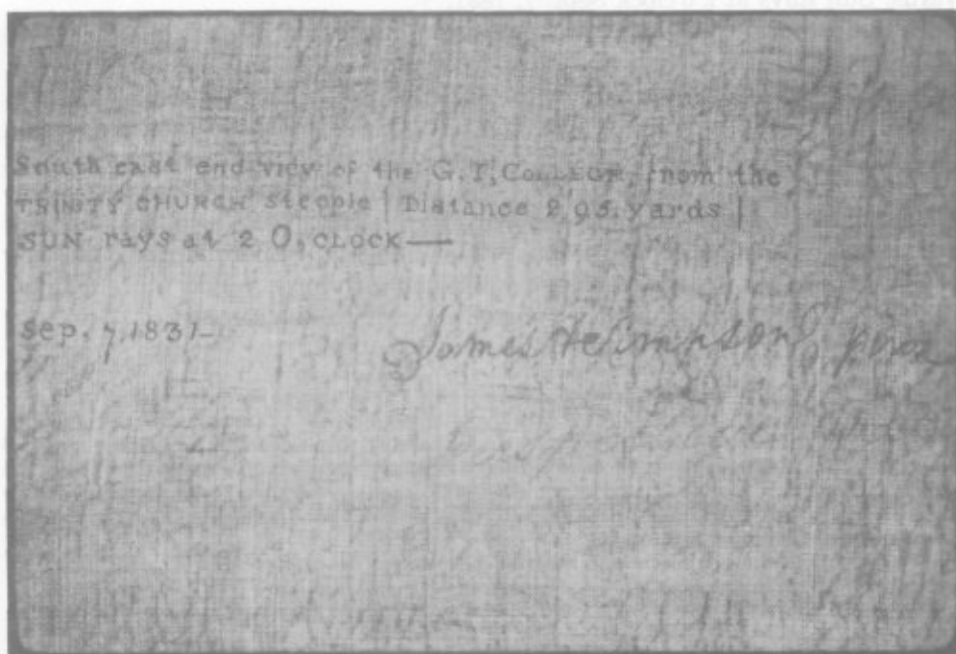 South east end view of the G.T. COLLEGE, from the
TRINITY CHURCH steeple | Distance 295. yards |
SUN rays at 2 O, CLOCK —
Sep. 7, 1831—
James H Simpson, pinx